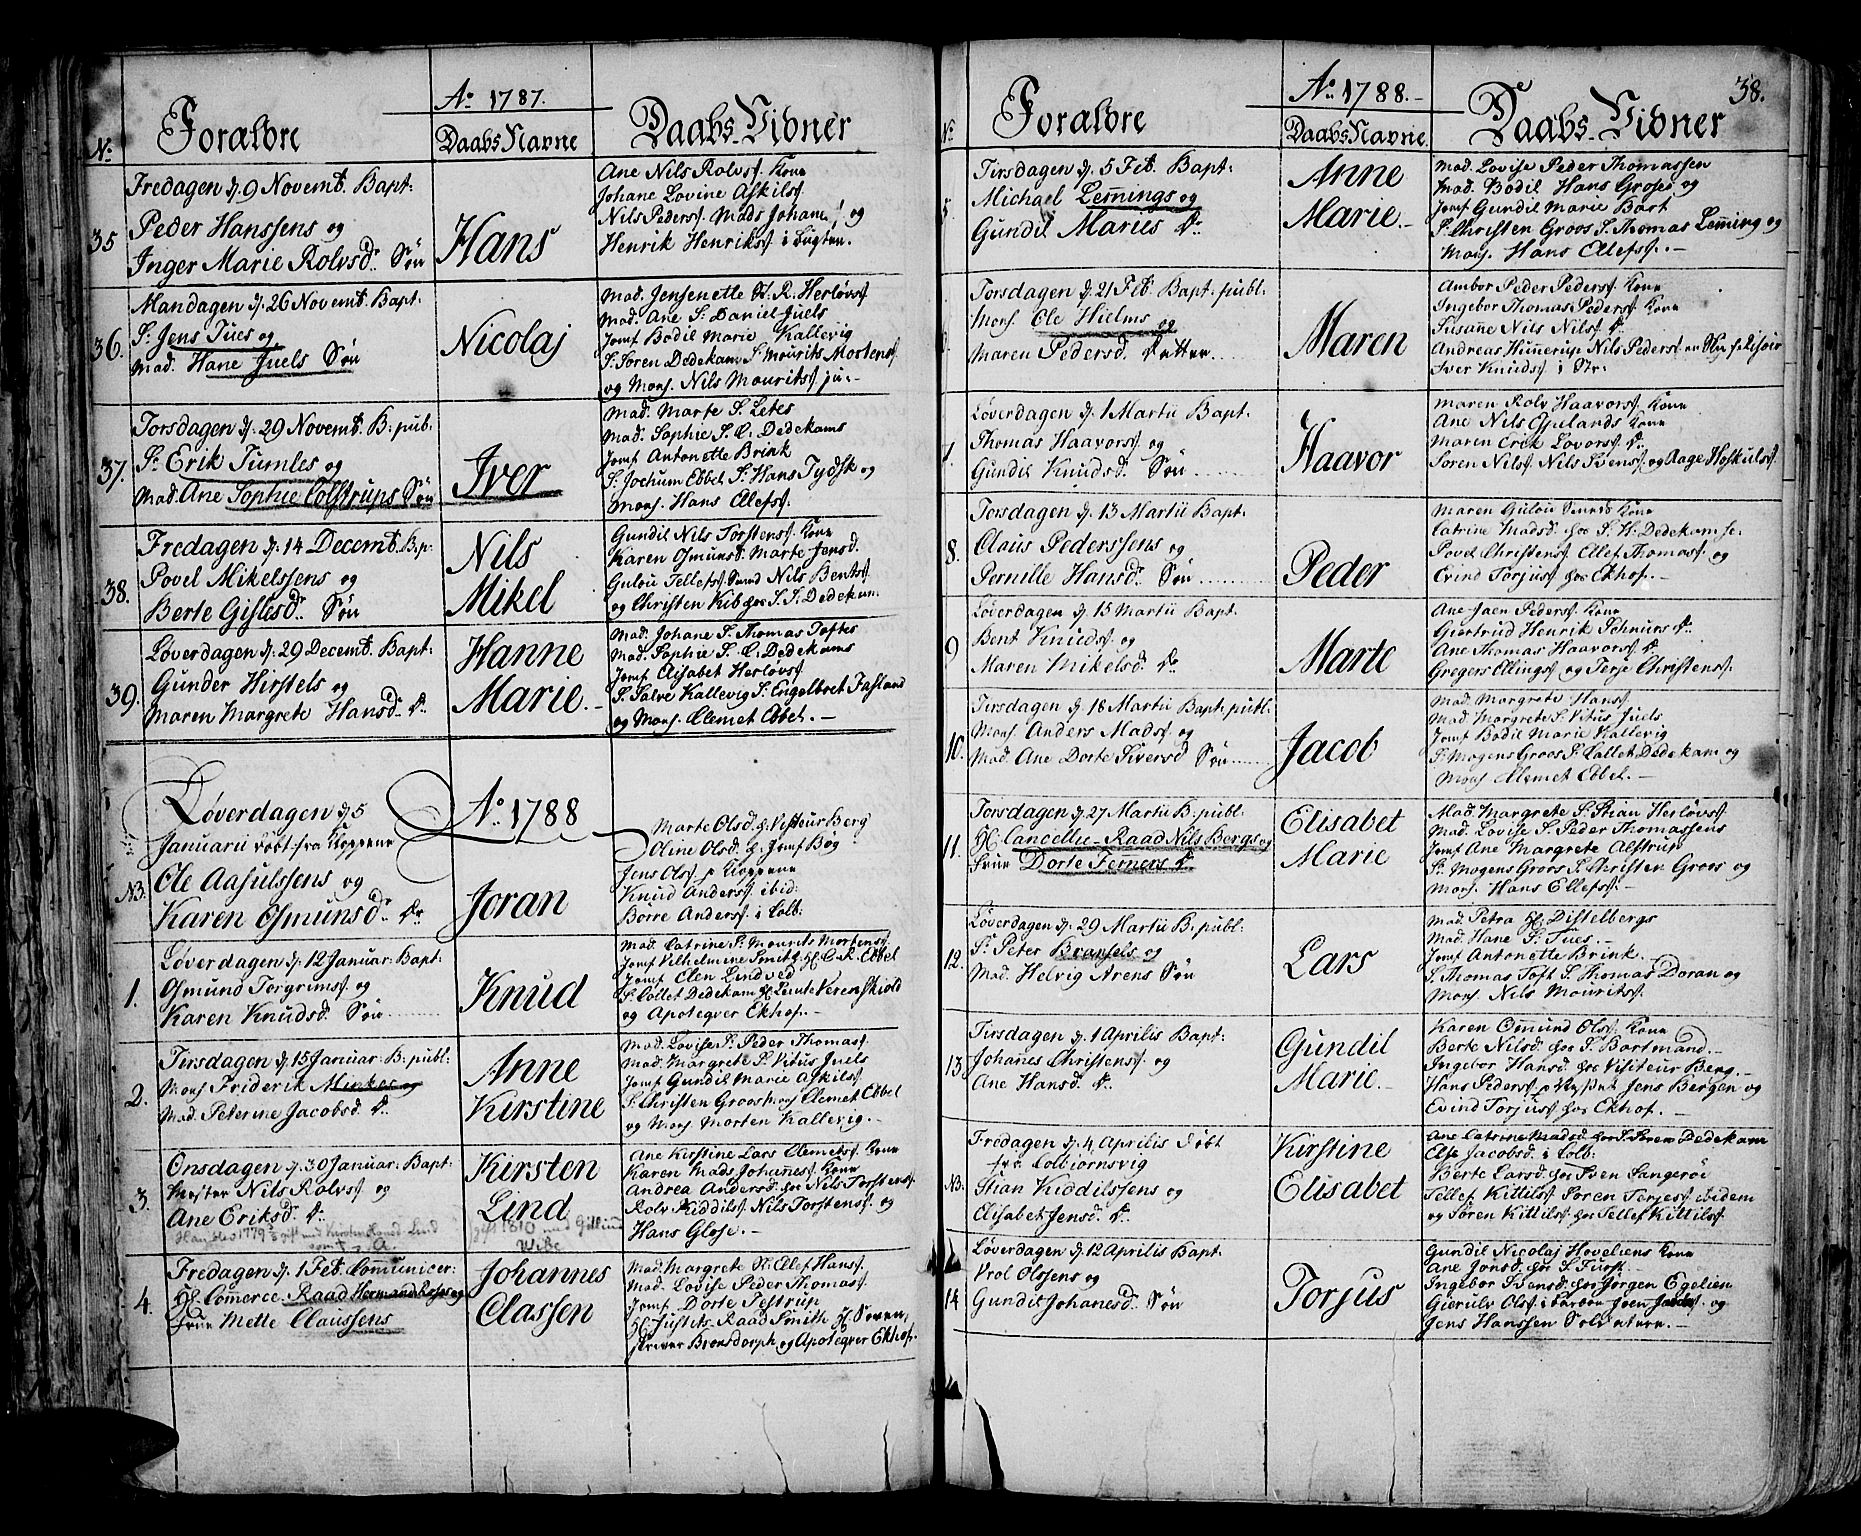 Aº 1787.
No
Forældre
Daabs Navne
Daabs-Vidner
35
Fredagen d. 9 Novembr. Bapt:
Peder Hanssens og
Inger Marie Rolvsd. Søn
Hans
Ane Nils Rolvs. Kone
Johane Lovine Askils.
Nils Peders. Mads Johann. og
Henrik Henriks. i Bugten.
36.
Mandagen d. 26 Novembr. Bapt:
Sr. Jens Tues og
Mad. Hane Juels Søn
Nicolaj
Mad. Jensenette N. R. Herløvs.
Mad. Ane S. Daniel Juels
Jomf Bodil Marie Kallevig
Sr. Søren Dedekam S. Mourits Mortens.
og Mons. Nils Mourits. ju:-
37.
Torsdagen d. 29 Novembr. B: pub:
Sr. Erik Tumles og
Mad. Ane Sophie Colstrups Søn
Iver
Mad. Marte S. Letes
Mad. Sophie S. C: Dedekams
Jomf Antonette Brink
S. Jochum Ebbel S. Hans Tydsk og
Mons. Hans Ellefs.
38.
Fredagen d. 14 Decembr. B: p:
Povel Mikelssens og
Berte Gislesd. Søn
Nils
Mikel
Gundil Nils Torstens. Kone
Karen Osmunsd. Marte Jensd.
Gulou Tellefs. Sund Nils Bents.
og Christen Kib hos S. S. Dedekam.
39.
Løverdagen d. 29 Decembr. Bapt:
Gunder Hirstels og
Maren Margrete Hansd. Dr.
Hanne
Marie. -
Mad. Johane S. Thomas Toftes
Mad. Sophie S. C: Dedekams
Jomf Elisabet Herløvs.
S. Salve Kallevig S. Engelbret Fasland
og Mons. Clemet Ebbel. -
Aº. 1788
NB.
Løverdagen d. 5
Januarii døbt fra Koppene
Ole Aasulssens og
Karen Osmunsd. Dr.
Joran
Marte Olsd. h. Visiteur Berg
Oline Olsd. h. Jomf Bøg
Jens Ols. p Koppene
Knud Anders. ibid:
Børre Anders. i Colb:
1.
Løverdagen d. 12 Januar: Bapt:
Osmund Torgrims. og
Karen Knudsd. Søn
Knud
Mad. Catrine S. Mourits Mortens.
Jomf Vilhelmine Smith H. C. R. Ebbel
Jomf Elen Lindved
S. Collet Dedekam H. Leute Verenskiold
og Apoteqver Ekhof. -
2.
Tirsdagen d. 15 Januar: B: publ:
Mons Friderik Minkes og
Mad. Peterine Jacobsd. Dr.
Anne
Kirstine
Mad. Lovise S. Peder Thomas.
Mad. Margrete S. Vitus Juels
Jomf Gundil Marie Askils.
S. Christen Groos Mons Clemet Ebbel
og Mons Morten Kallevig. -
3.
Onsdagen d. 30 Januar: Bapt:
Mester Nils Rolvs. og
Ane Eriksd. Dr.
Kirsten
Lind
gift 1810 med
Ane Kirstine Lars Clemets. Kone
Karen Mads Johannes. Kone
Andrea Andersd. hos Nils Torstens.
Rolv Kiddils. Nils Torstens. og
Hans Glose. -
4.
Fredagen d. 1 Feb. Comunicer:
H. Comerce-Raad Herman Roses og
Frue Mette Claussens
Johannes
Classen
Mad. Margrete N. Elef Hans.
Mad. Lovise Peder Thomas.
Jomf Dorte Testrup
H. Justits Raad Smith H. Soren,
skriver Bronsdorph og Apoteqver Ekhof.
38.
Aº 1788. -
No
Forældre
Daabs Navne
Daabs-Vidner
5.
Tirsdagen d. 5 Feb. Bapt:
Michael Lemings og
Gundil Maries Dr.
Anne
Marie. -
Mad. Lovise Peder Thomassen
Mad. Bodil Hans Groses og
Jomf Gundil Marie Bart
S. Christen Groos S. Thomas Leming og
Mons. Hans Elefs. -
Torsdagen d. 21 Feb. Bapt: publ:
Mons. Ole Hielms og
Maren Pedersd. Datter
Maren
Ambor Peder Peders. Kone
Ingebor Thomas Peders. Kone
Susane Nils Nils. Dr.
Andreas Hunerup Nils Peders.
Iver Knuds. i Str:
7.
Løverdagen d. 1 Martii Bapt:
Thomas Haavors. og
Gundil Knudsd. Søn
Haavor
Maren Rolv Haavors. Kone
Ane Nils Eyelands Kone
Maren Erik Lovors. Dr.
Soren Nils. Nils Svens. og Aage Hoskuls.
8.
Torsdagen d. 13 Martii Bapt:
Claus Pederssens og
Pernille Hansd. Søn
Peder
Maren Gulou Sunds Kone
Catrine Madsd. hos S. W. Dedekam se-
Povel Christens. Ellef Thomas. og
Evind Torjus. hos Ekhof. -
9
Løverdagen d. 15 Martii Bapt:
Bent Knuds. og
Maren Mikelsd. Dr.
Marte
Ane Jaen Peders. Kone
Giertrud Henrik Schnurs Dr.
Ane Thomas Haavors. Dr.
Gregers Ellings. og Terje Christens.
10.
Tirsdagen d. 18 Martii Bapt. publ:
Mons. Anders Mads. og
Mad. Ane Dorte Siversd. Søn
Jacob
Mad. Margrete Hans.
Mad. Margrete S. Vitus Juels
Jomf Bodil Marie Kallevig
S. Mogens Groos S. Collet Dedekam og
Mons Clemet Ebbel. -
11.
Torsdagen d. 27 Martii B: publ:
H. Cancellie-Raad Nils Bergs og
Frue Dorte Femers Dr.
Elisabet
Marie
Mad. Margrete S. Stian Herløvs.
Mad. Lovise S. Peder Thomassens
Jomf Ane Margrete Alstrup
S. Mogens Groos S. Christen Groos og
Mons. Hans Ellefs. -
12.
Løverdagen d. 29 Martii B: publ:
S. Peter Branfels og
Mad. Helvig Arens Søn
Lars
Mad. Petra H. Distelbergs
Mad. Hane S. Tues. -
Jomf Antonette Brink.
S. Thomas Toft S. Thomas Doran og
Mons. Nils Mourits.
13
Tirsdagen d. 1 Aprilis Bapt:
Johanes Christens. og
Ane Hansd. Dr.
Gundil
Marie. -
Karen Omund Ols. Kone
Berte Nilsd. hos S. Bartmand. -
Ingebor Hansd. hos Visiteur Berg. -
Hans Peders. Jens Bergen og
Evind Torjus. hos Ekhof. -
NB.
Fredagen d. 4 Aprilis døbt
fra Colbiornsvig
Stian Kiddilssens og
Elisabet Jensd. Dr.
Kirstine
Elisabet
Ane Catrine Madsd. hos S. Soren Dedekam
Else Jacobsd. i Colb:
Berte Larsd. hos Sven Sangerøi
Tellef Kittils. Soren Terjes. ibidem
og Soren Kittils. hos Tellef Kittils.
14
Løverdagen d. 12 Aprilis Bapt:
Vrol Olssens og
Gundil Johanesd. Søn
Torjus
Gundil Nicolaj Hoveliens Kone
Ane Jonsd. hos S. Furst. -
Ingebor Svensd. hos Jørgen Egelien
Gierulv Ols. i Barboe og
Jens Hanssen Solvaturn. -